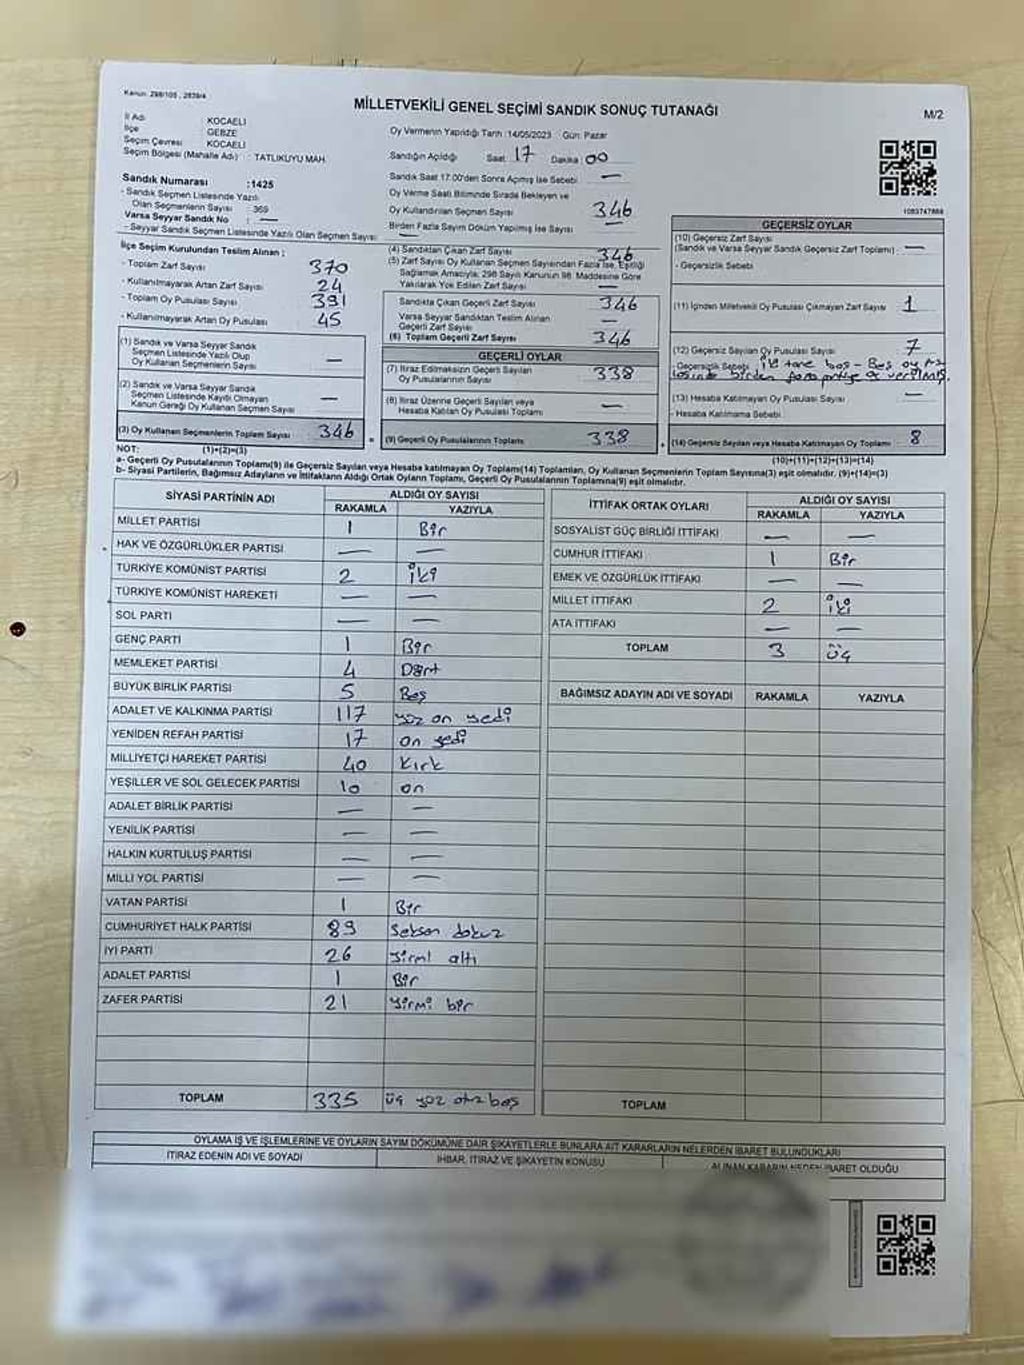 Kanun: 298/105, 2839/4
MİLLETVEKİLİ GENEL SEÇİMİ SANDIK SONUÇ TUTANAĞI
M/2
İl Adı : KOCAELİ
İlçe : GEBZE
Seçim Çevresi : KOCAELİ
Seçim Bölgesi (Mahalle Adı) : TATLIKUYU MAH.
Sandık Numarası :1425
- Sandık Seçmen Listesinde Yazılı
Olan Seçmenlerin Sayısı : 369
Varsa Seyyar Sandık No : —
- Seyyar Sandık Seçmen Listesinde Yazılı Olan Seçmen Sayısı
Oy Vermenin Yapıldığı Tarih :14/05/2023 Gün: Pazar
Sandığın Açıldığı Saat 17 Dakika 00
Sandık Saat 17.00'den Sonra Açmış İse Sebebi —
Oy Verme Saati Bitiminde Sırada Bekleyen ve
Oy Kullandırılan Seçmen Sayısı 346
Birden Fazla Sayım Döküm Yapılmış İse Sayısı —
1083747888
İlçe Seçim Kurulundan Teslim Alınan ;
- Toplam Zarf Sayısı 370
- Kullanılmayarak Artan Zarf Sayısı 24
- Toplam Oy Pusulası Sayısı 391
- Kullanılmayarak Artan Oy Pusulası 45
(1) Sandık ve Varsa Seyyar Sandık
Seçmen Listesinde Yazılı Olup
Oy Kullanan Seçmenlerin Sayısı —
(2) Sandık ve Varsa Seyyar Sandık
Seçmen Listesinde Kayıtlı Olmayan
Kanun Gereği Oy Kullanan Seçmen Sayısı —
(3) Oy Kullanan Seçmenlerin Toplam Sayısı 346
(4) Sandıktan Çıkan Zarf Sayısı 346
(5) Zarf Sayısı Oy Kullanan Seçmen Sayısından Fazla İse, Eşitliği
Sağlamak Amacıyla; 298 Sayılı Kanunun 98. Maddesine Göre
Yakılarak Yok Edilen Zarf Sayısı —
Sandıkta Çıkan Geçerli Zarf Sayısı 346
Varsa Seyyar Sandıktan Teslim Alınan
Geçerli Zarf Sayısı —
(6) Toplam Geçerli Zarf Sayısı 346
GEÇERLİ OYLAR
(7) İtiraz Edilmeksizin Geçerli Sayılan
Oy Pusulalarının Sayısı 338
(8) İtiraz Üzerine Geçerli Sayılan veya
Hesaba Katılan Oy Pusulası Toplamı —
(9) Geçerli Oy Pusulalarının Toplamı 338
GEÇERSİZ OYLAR
(10) Geçersiz Zarf Sayısı
(Sandık ve Varsa Seyyar Sandık Geçersiz Zarf Toplamı) : —
- Geçersizlik Sebebi
(11) İçinden Milletvekili Oy Pusulası Çıkmayan Zarf Sayısı 1
(12) Geçersiz Sayılan Oy Pusulası Sayısı : 7
- Geçersizlik Sebebi : iki tane boş - Beş oy
birden
(13) Hesaba Katılmayan Oy Pusulası Sayısı —
- Hesaba Katılmama Sebebi :
(14) Geçersiz Sayılan veya Hesaba Katılmayan Oy Toplamı 8
NOT: (1)+(2)=(3) (10)+(11)+(12)+(13)=(14)
a- Geçerli Oy Pusulalarının Toplamı(9) ile Geçersiz Sayılan veya Hesaba katılmayan Oy Toplam(14) Toplamları, Oy Kullanan Seçmenlerin Toplam Sayısına(3) eşit olmalıdır. (9)+(14)=(3)
b- Siyasi Partilerin, Bağımsız Adayların ve İttifakların Aldığı Ortak Oyların Toplamı, Geçerli Oy Pusulalarının Toplamına(9) eşit olmalıdır.
SİYASİ PARTİNİN ADI ALDIĞI OY SAYISI
RAKAMLA YAZIYLA
MİLLET PARTİSİ 1 Bir
HAK VE ÖZGÜRLÜKLER PARTİSİ — —
TÜRKİYE KOMÜNİST PARTİSİ 2 iki
TÜRKİYE KOMÜNİST HAREKETİ — —
SOL PARTİ — —
GENÇ PARTİ 1 Bir
MEMLEKET PARTİSİ 4 Dört
BÜYÜK BİRLİK PARTİSİ 5 Beş
ADALET VE KALKINMA PARTİSİ 117 yüz on yedi
YENİDEN REFAH PARTİSİ 17 on yedi
MİLLİYETÇİ HAREKET PARTİSİ 40 Kırk
YEŞİLLER VE SOL GELECEK PARTİSİ 10 on
ADALET BİRLİK PARTİSİ — —
YENİLİK PARTİSİ — —
HALKIN KURTULUŞ PARTİSİ — —
MİLLİ YOL PARTİSİ — —
VATAN PARTİSİ 1 Bir
CUMHURİYET HALK PARTİSİ 89 seksen dokuz
İYİ PARTİ 26 yirmi altı
ADALET PARTİSİ 1 Bir
ZAFER PARTİSİ 21 yirmi bir
TOPLAM 335 üç yüz otuz beş
İTTİFAK ORTAK OYLARI ALDIĞI OY SAYISI
RAKAMLA YAZIYLA
SOSYALİST GÜÇ BİRLİĞİ İTTİFAKI — —
CUMHUR İTTİFAKI 1 Bir
EMEK VE ÖZGÜRLÜK İTTİFAKI — —
MİLLET İTTİFAKI 2 iki
ATA İTTİFAKI — —
TOPLAM 3 üç
BAĞIMSIZ ADAYIN ADI VE SOYADI RAKAMLA YAZIYLA
TOPLAM
OYLAMA İŞ VE İŞLEMLERİNE VE OYLARIN SAYIM DÖKÜMÜNE DAİR ŞİKAYETLERLE BUNLARA AİT KARARLARIN NELERDEN İBARET BULUNDUKLARI
İTİRAZ EDENİN ADI VE SOYADI İHBAR, İTİRAZ VE ŞİKAYETİN KONUSU ALINAN KARARIN NEDEN İBARET OLDUĞU